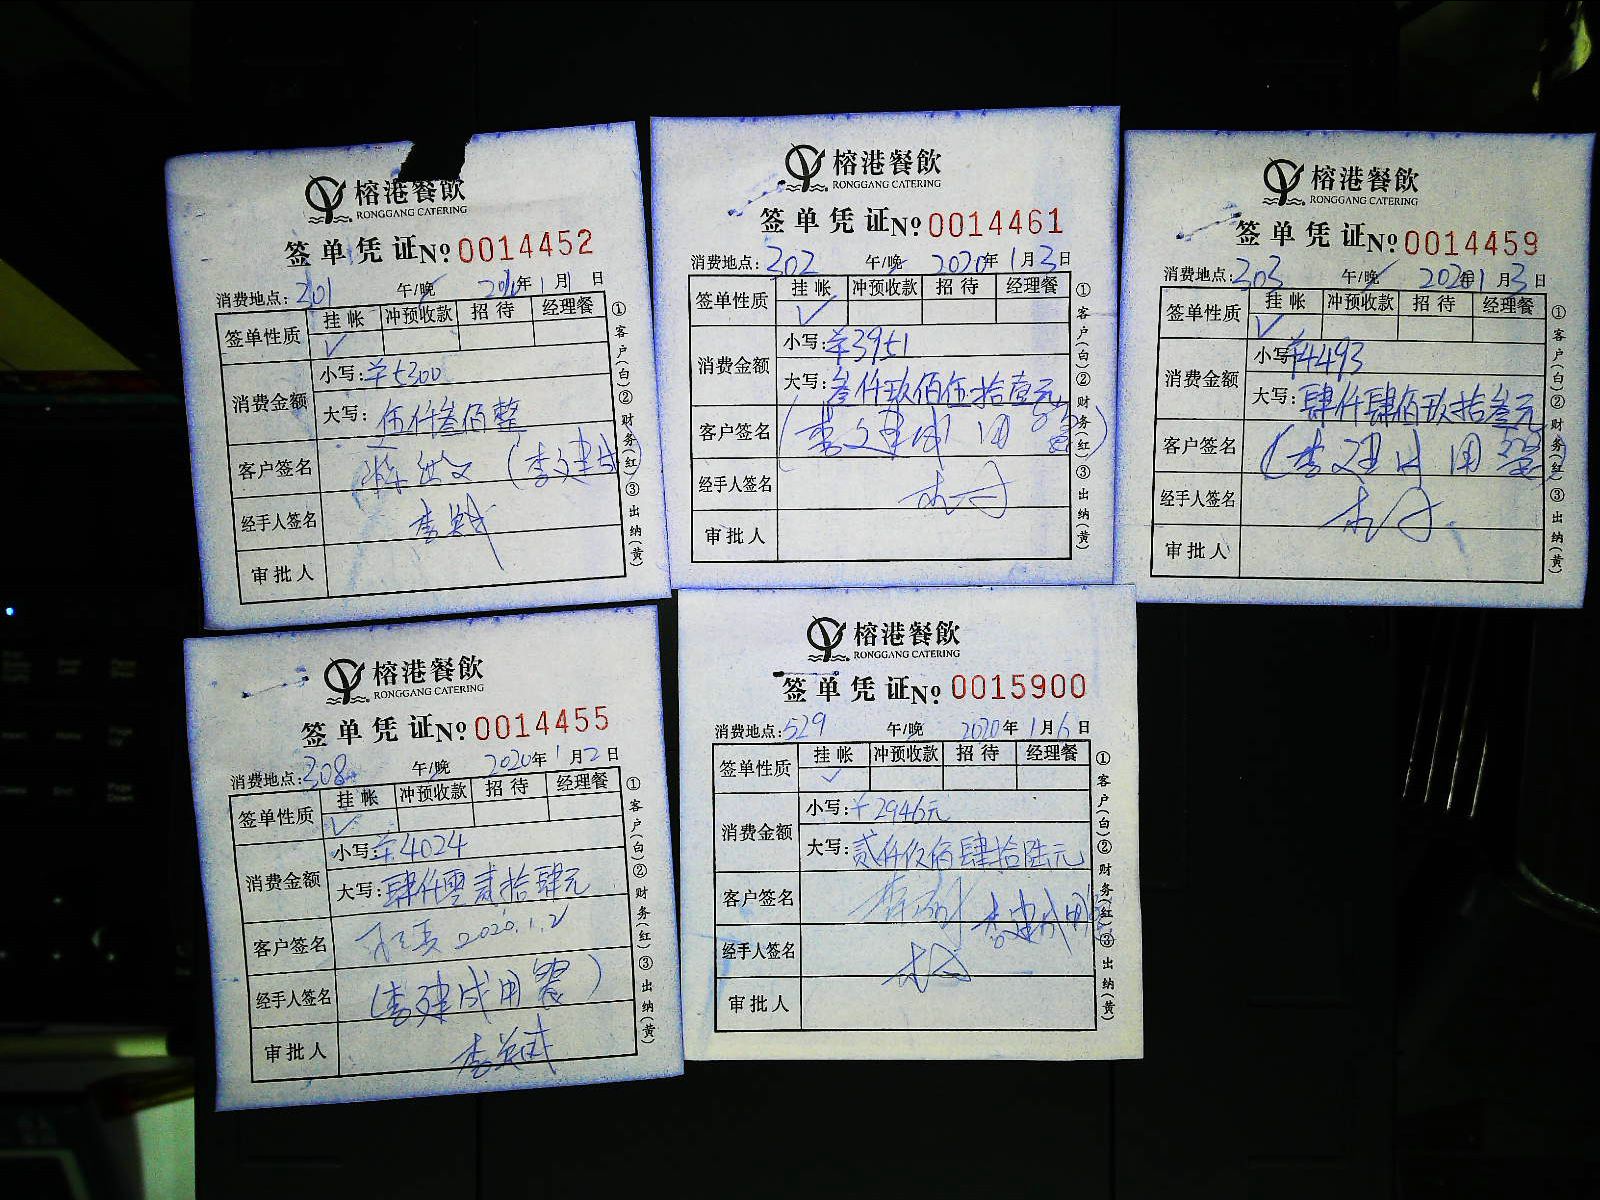 榕港餐飲
RONGGANG CATERING
签单凭证 No 0014452
消费地点: 301 午/晚 2020年1月1日
签单性质 挂帐 冲预收款 招待 经理餐
✓
消费金额 小写: ¥5300
大写: 伍仟叁佰整
客户签名 (李建成
经手人签名
审批人
①客户(白)②财务(红)③出纳(黄)
榕港餐飲
RONGGANG CATERING
签单凭证 No 0014461
消费地点: 302 午/晚 2020年1月3日
签单性质 挂帐 冲预收款 招待 经理餐
✓
消费金额 小写: ¥3951
大写: 叁仟玖佰伍拾壹元
客户签名 (李建成用餐)
经手人签名
审批人
①客户(白)②财务(红)③出纳(黄)
榕港餐飲
RONGGANG CATERING
签单凭证 No 0014459
消费地点: 303 午/晚 2020年1月3日
签单性质 挂帐 冲预收款 招待 经理餐
✓
消费金额 小写: ¥4493
大写: 肆仟肆佰玖拾叁元
客户签名 (李建成用餐)
经手人签名
审批人
①客户(白)②财务(红)③出纳(黄)
榕港餐飲
RONGGANG CATERING
签单凭证 No 0014455
消费地点: 308 午/晚 2020年1月2日
签单性质 挂帐 冲预收款 招待 经理餐
✓
消费金额 小写: ¥4024
大写: 肆仟零贰拾肆元
客户签名 2020.1.2
经手人签名 (李建成用餐)
审批人
①客户(白)②财务(红)③出纳(黄)
榕港餐飲
RONGGANG CATERING
签单凭证 No 0015900
消费地点: 529 午/晚 2020年1月6日
签单性质 挂帐 冲预收款 招待 经理餐
✓
消费金额 小写: ¥2946元
大写: 贰仟玖佰肆拾陆元
客户签名 李建成用餐
经手人签名
审批人
①客户(白)②财务(红)③出纳(黄)